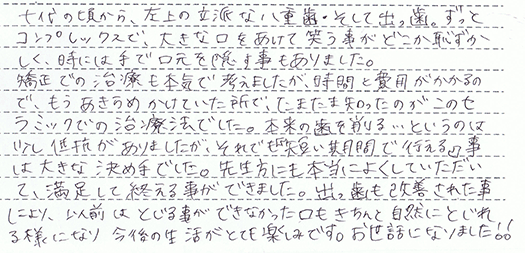 十代の頃から、左上の立派な八重歯・そして出っ歯。ずっと
コンプレックスで、大きな口をあけて笑う事がどこか恥ずか
しく、時には手で口元を隠す事もありました。
矯正での治療も本気で考えましたが、時間と費用がかかるの
で、もうあきらめかけていた所で、たまたま知ったのがこのセ
ラミックでの治療法でした。本来の歯を削る…というのは
少し抵抗がありましたが、それでも『短い期間で行える』事
は大きな決め手でした。先生方にも本当によくしていただい
て、満足して終える事ができました。出っ歯も改善された事
により、以前はとじる事ができなかった口もきちんと自然にとじれ
る様になり 今後の生活がとても楽しみです。お世話になりました!!